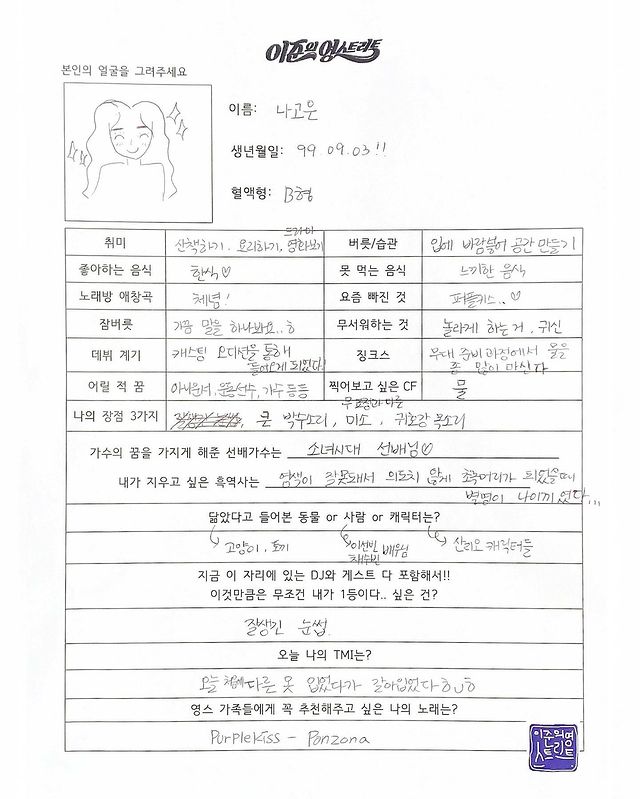 이준의 영스트리트
본인의 얼굴을 그려주세요
이름: 나고은
생년월일: 99.09.03!!
혈액형: B형
취미 산책하기. 요리하기, 영화보기 드라마
버릇/습관 입에 바람불어 공간 만들기
좋아하는 음식 한식♡
못 먹는 음식 느끼한 음식
노래방 애창곡 체념!
요즘 빠진 것 퍼플키스..♡
잠버릇 가끔 말을 하나봐요..ㅎ
무서워하는 것 놀라게 하는 거, 귀신
데뷔 계기 캐스팅 오디션을 통해
들어오게 되었다!
징크스 무대 준비과정에서 물을
좀 많이 마신다
어릴 적 꿈 아나운서, 운동선수, 가수 등등
찍어보고 싶은 CF 물
나의 장점 3가지 큰 박수소리, 무표정과 다른 미소, 귀호강 목소리
가수의 꿈을 가지게 해준 선배가수는 소녀시대 선배님♡
내가 지우고 싶은 흑역사는 염색이 잘못돼서 의도치 않게 초록머리가 되었을때
별명이 나이끼였다...
닮았다고 들어본 동물 or 사람 or 캐릭터는?
고양이, 토끼
이선빈
채수빈 배우님
산리오 캐릭터들
지금 이 자리에 있는 DJ와 게스트 다 포함해서!!
이것만큼은 무조건 내가 1등이다.. 싶은 건?
잘생긴 눈썹.
오늘 나의 TMI는?
오늘 처음에 다른 옷 입었다가 갈아입었다ㅎㅅㅎ
영스 가족들에게 꼭 추천해주고 싶은 나의 노래는?
PurpleKiss - Ponzona
이준의영
스트리트